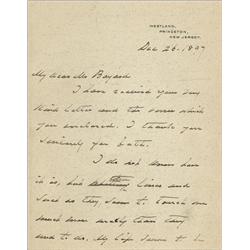 WESTLAND,
PRINCETON,
NEW JERSEY.
Dec 26. 1897
My dear Mr Bayard
I have received your very
kind letter and the verses which
you enclosed. I thank you
sincerely you both.
I do not know how
it is, but lines and
such as they seem to touch me
much more nearly than they
used to do. My life seems to be